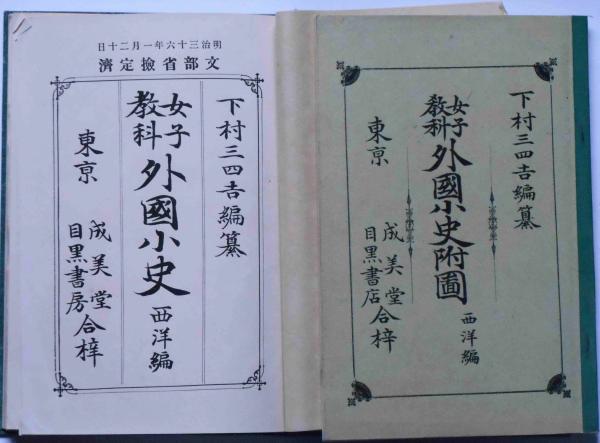 明治三十六年一月二十日
文部省檢定濟
下村三四吉編纂
女子教科 外國小史 西洋編
東京 成美堂 目黒書房 合梓
下村三四吉編纂
女子教科 外國小史附圖 西洋編
東京 成美堂 目黒書店 合梓